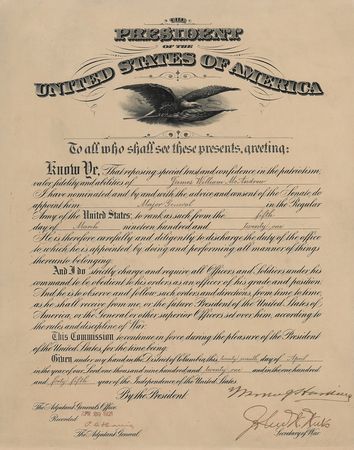 THE
PRESIDENT
OF THE
UNITED STATES OF AMERICA
To all who shall see these presents, greeting:
Know Ye, That reposing special trust and confidence in the patriotism,
valor, fidelity and abilities of James William McAndrew
I have nominated and by and with the advice and consent of the Senate do
appoint him Major General in the Regular
Army of the United States; to rank as such from the fifth
day of March nineteen hundred and twenty one
He is therefore carefully and diligently to discharge the duty of the office
to which he is appointed by doing and performing all manner of things
thereunto belonging.
And I do strictly charge and require all Officers and Soldiers under his
command to be obedient to his orders as an officer of his grade and position.
And he is to observe and follow such orders and directions, from time to time,
as he shall receive from me, or the future President of the United States of
America, or the General or other superior Officers set over him, according to
the rules and discipline of War.
This Commission to continue in force during the pleasure of the President
of the United States, for the time being.
Given under my hand in the District of Columbia this day of April
in the year of our Lord one thousand nine hundred and twenty one and in the one hundred
and forty fifth year of the Independence of the United States.
By the President
Warren G Harding
The Adjutant General's Office
Recorded APR 1921
The Adjutant General.
John W. Weeks
Secretary of War.